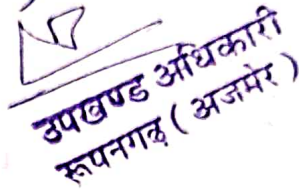 उपखण्ड अधिकारी
रूपनगढ़ (अजमेर)